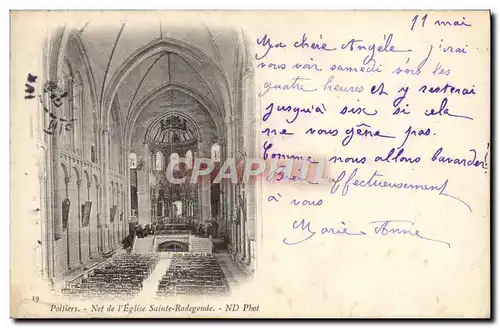 11 mai
Ma chère Angèle j'irai
vous voir samedi vers les
quatre heures et y resterai
jusqu'à six si cela
ne vous gêne pas.
Comme nous allons bavarder!
Bien Affectueusement
à vous
Marie Anne
CPARAMA
19
Poitiers. - Nef de l'Église Sainte-Radegonde. - ND Phot